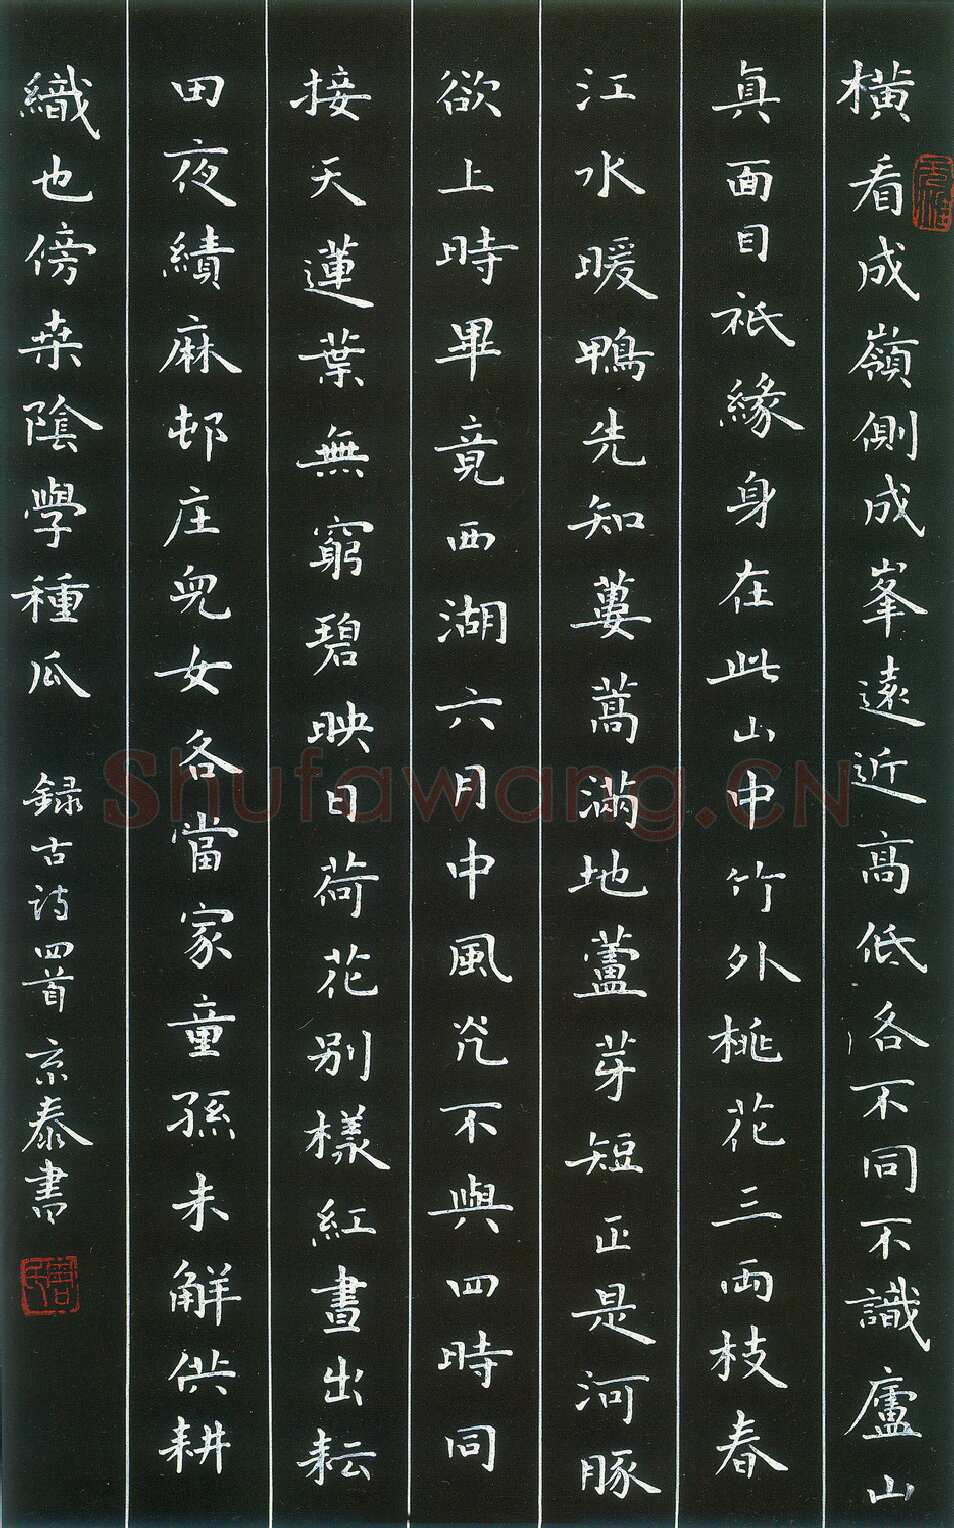 横看成嶺側成峯遠近高低各不同不識廬山
真面目祇緣身在此山中竹外桃花三兩枝春
江水暖鴨先知蔞蒿滿地蘆芽短正是河豚
欲上時畢竟西湖六月中風光不與四時同
接天蓮葉無窮碧映日荷花別樣紅晝出耘
田夜績麻邨庄兒女各當家童孫未解供耕
織也傍桒陰學種瓜 録古詩四首 京泰書
Shufawang.CN